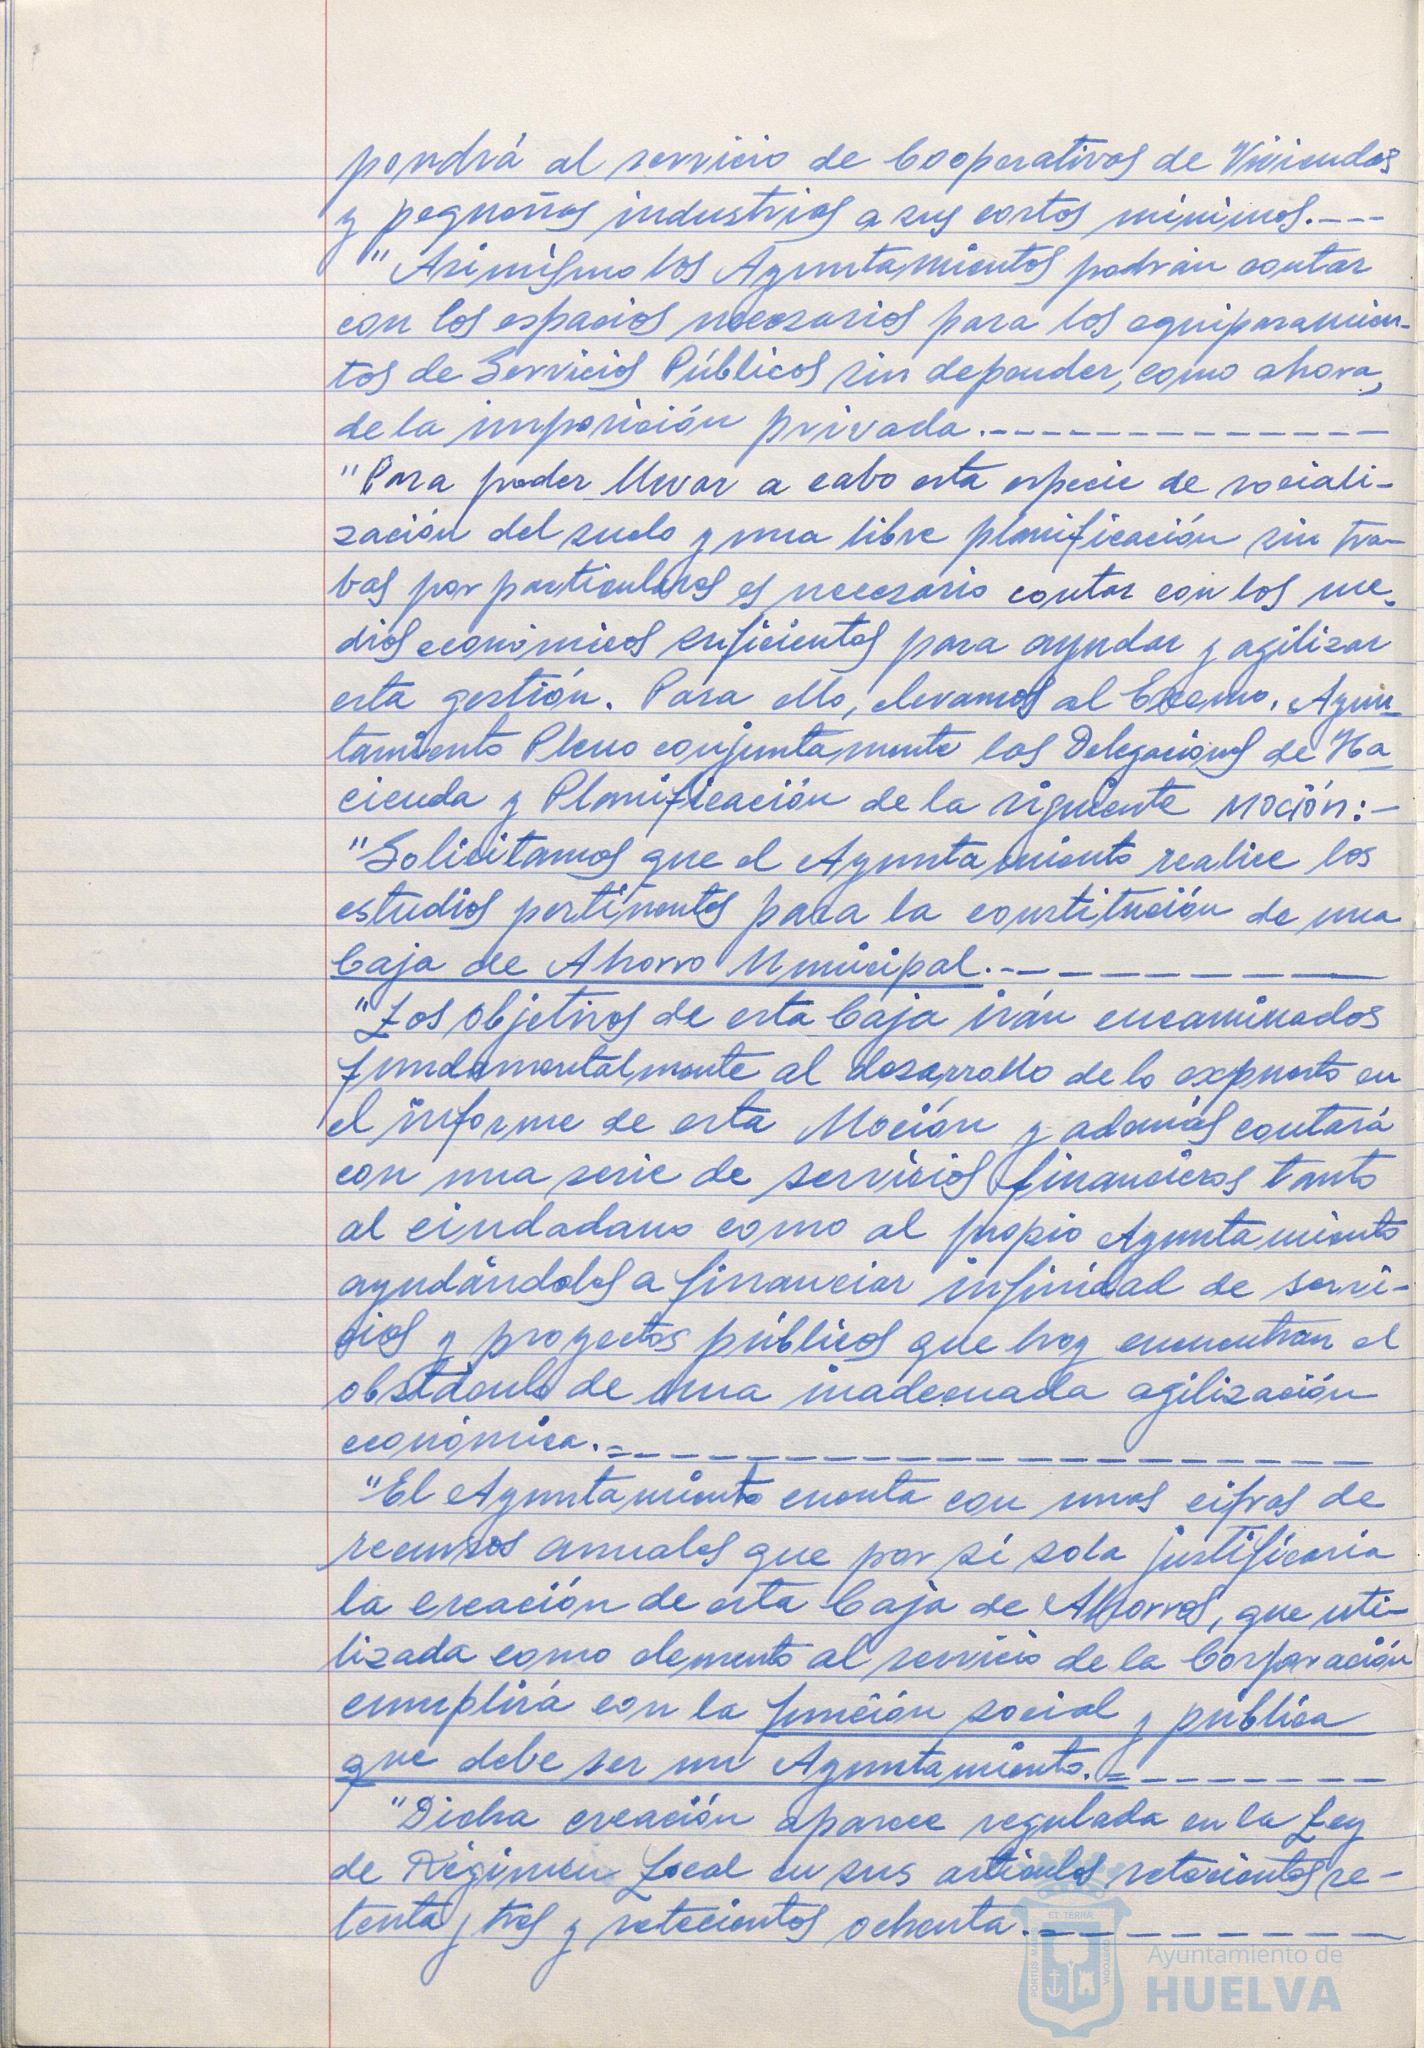 pondrá al servicio de Cooperativas de Viviendas
y pequeñas industrias a sus costos mínimos.---
"Asimismo los Ayuntamientos podrán contar
con los espacios necesarios para los equiparamien-
tos de Servicios Públicos sin depender, como ahora,
de la imposición privada.--------------
"Para poder llevar a cabo esta especie de sociali-
zación del suelo y una libre planificación sin tra-
bas por particulares es necesario contar con los me-
dios económicos suficientes para ayudar y agilizar
esta gestión. Para ello, elevamos al Excmo. Ayun-
tamiento Pleno conjuntamente las Delegaciones de Ha-
cienda y Planificación de la siguiente MOCIÓN:-
"Solicitamos que el Ayuntamiento realice los
estudios pertinentes para la constitución de una
Caja de Ahorro Municipal.---------
"Los objetivos de esta Caja irán encaminados
fundamentalmente al desarrollo de lo expuesto en
el informe de esta Moción y además contará
con una serie de servicios financieros tanto
al ciudadano como al propio Ayuntamiento
ayudándoles a financiar infinidad de servi-
cios y proyectos públicos que hoy encuentran el
obstáculo de una inadecuada agilización
económica.------------------
"El Ayuntamiento cuenta con unas cifras de
recursos anuales que por sí sola justificaría
la creación de esta Caja de Ahorros, que uti-
lizada como elemento al servicio de la Corporación
cumplirá con la función social y pública
que debe ser un Ayuntamiento.---------
"Dicha creación aparece regulada en la Ley
de Régimen Local en sus artículos setecientos se-
tenta y tres y setecientos ochenta.---------
ET TERRAE
PORTUS MARIS
CUSTODIA
Ayuntamiento de
HUELVA